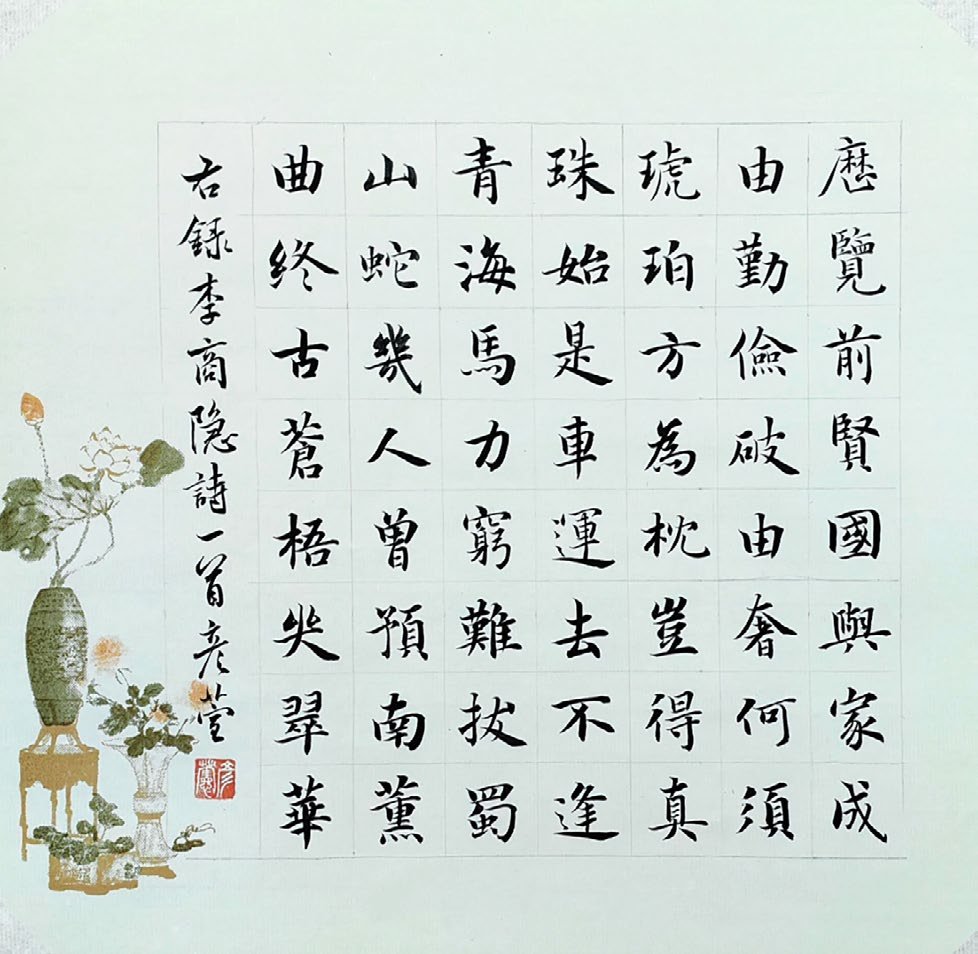 歷覽前賢國與家成
由勤儉破由奢何須
琥珀方為枕豈得真
珠始是車運去不逢
青海馬力窮難拔蜀
山蛇幾人曾預南薰
曲終古蒼梧哭翠華
右録李商隐詩一首彦萱